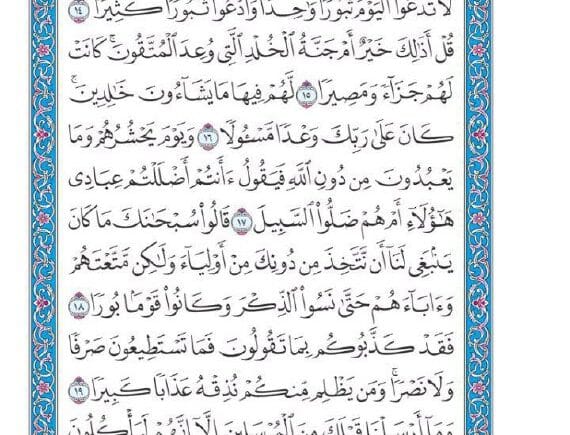 لَّا تَدْعُوا۟ ٱلْيَوْمَ ثُبُورًا وَٰحِدًا وَٱدْعُوا۟ ثُبُورًا كَثِيرًا ١٤
قُلْ أَذَٰلِكَ خَيْرٌ أَمْ جَنَّةُ ٱلْخُلْدِ ٱلَّتِى وُعِدَ ٱلْمُتَّقُونَ ۚ كَانَتْ
لَهُمْ جَزَآءً وَمَصِيرًا ١٥ لَّهُمْ فِيهَا مَا يَشَآءُونَ خَٰلِدِينَ ۚ
كَانَ عَلَىٰ رَبِّكَ وَعْدًا مَّسْـُٔولًا ١٦ وَيَوْمَ يَحْشُرُهُمْ وَمَا
يَعْبُدُونَ مِن دُونِ ٱللَّهِ فَيَقُولُ ءَأَنتُمْ أَضْلَلْتُمْ عِبَادِى
هَٰٓؤُلَآءِ أَمْ هُمْ ضَلُّوا۟ ٱلسَّبِيلَ ١٧ قَالُوا۟ سُبْحَٰنَكَ مَا كَانَ
يَنۢبَغِى لَنَآ أَن نَّتَّخِذَ مِن دُونِكَ مِنْ أَوْلِيَآءَ وَلَٰكِن مَّتَّعْتَهُمْ
وَءَابَآءَهُمْ حَتَّىٰ نَسُوا۟ ٱلذِّكْرَ وَكَانُوا۟ قَوْمًۢا بُورًا ١٨
فَقَدْ كَذَّبُوكُم بِمَا تَقُولُونَ فَمَا تَسْتَطِيعُونَ صَرْفًا
وَلَا نَصْرًا ۚ وَمَن يَظْلِم مِّنكُمْ نُذِقْهُ عَذَابًا كَبِيرًا ١٩
وَمَآ أَرْسَلْنَا قَبْلَكَ مِنَ ٱلْمُرْسَلِينَ إِلَّآ إِنَّهُمْ لَيَأْكُلُونَ